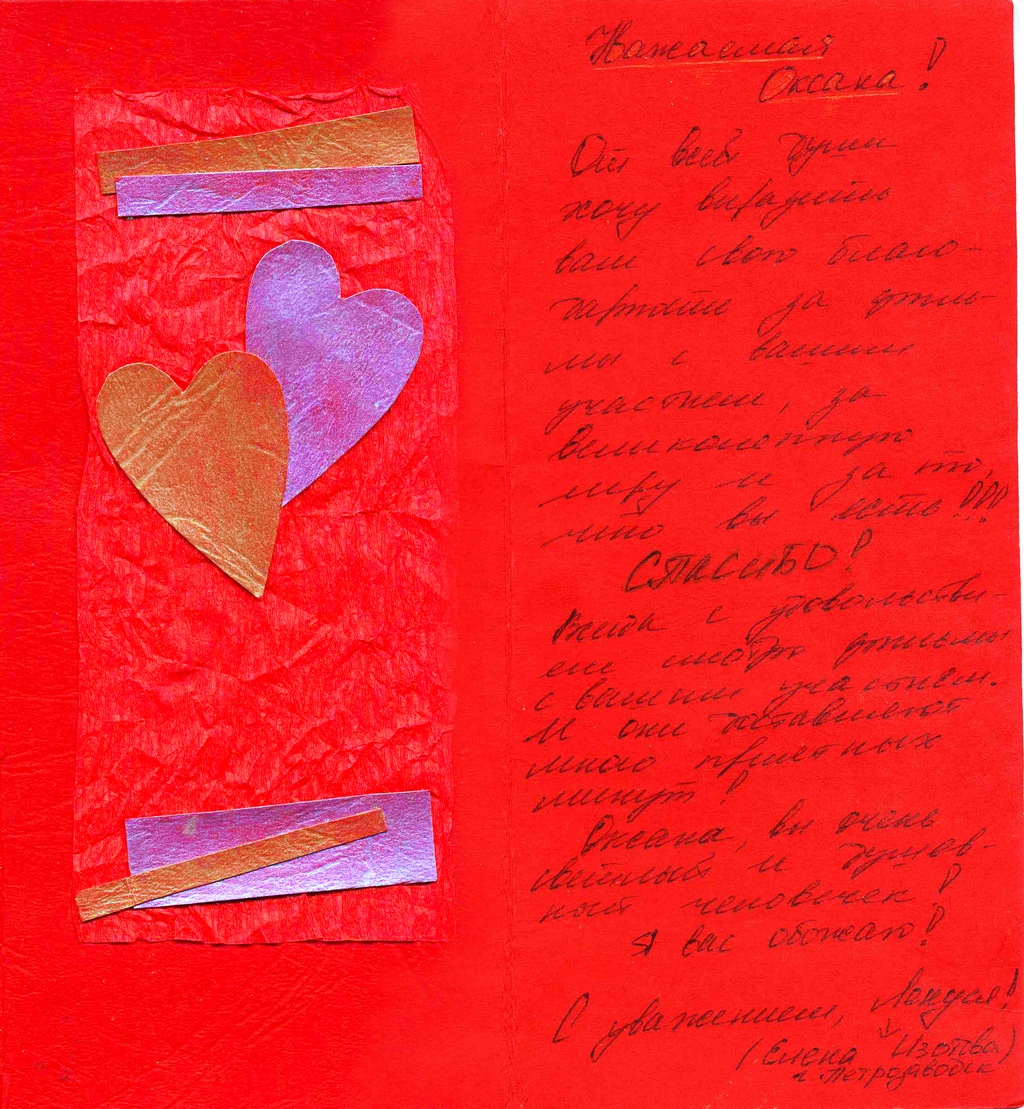 Уважаемая
Оксана!
От всей души
хочу выразить
вам свою благо-
дарность за филь-
мы с вашим
участием, за
великолепную
игру и за то,
что вы есть!!!
СПАСИБО!
Всегда с удовольстви-
ем смотрю фильмы
с вашим участием.
И они доставляют
много приятных
минут!
Оксана, вы очень
светлый и душев-
ный человечек!
Я вас обожаю!
С уважением,
(Елена Изотова)
г. Петрозаводск